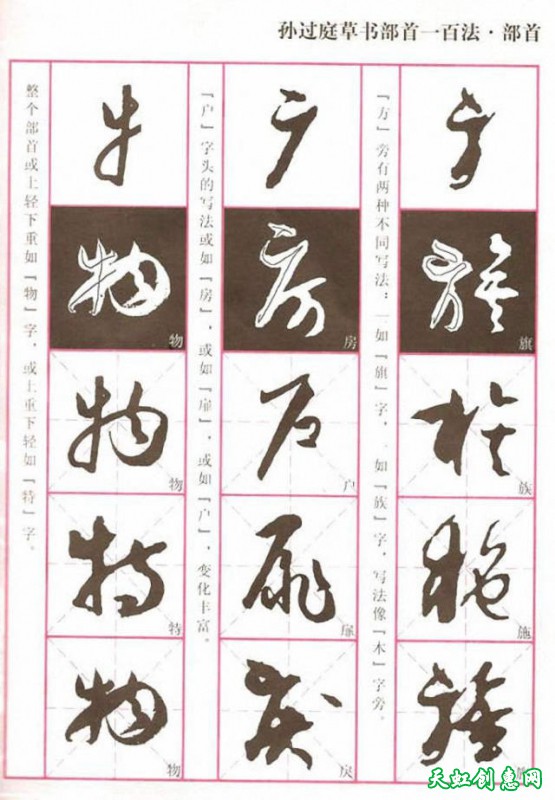 孙过庭草书部首一百法·部首
旗
族
施
『方』旁有两种不同写法：一如『旗』字，一如『族』字，写法像『木』字旁。
房
户
扉
戾
『户』字头的写法或如『房』，或如『扉』，或如『户』，变化丰富。
物
物
特
物
整个部首或上轻下重如『物』字，或上重下轻如『特』字。
天虹创惠网